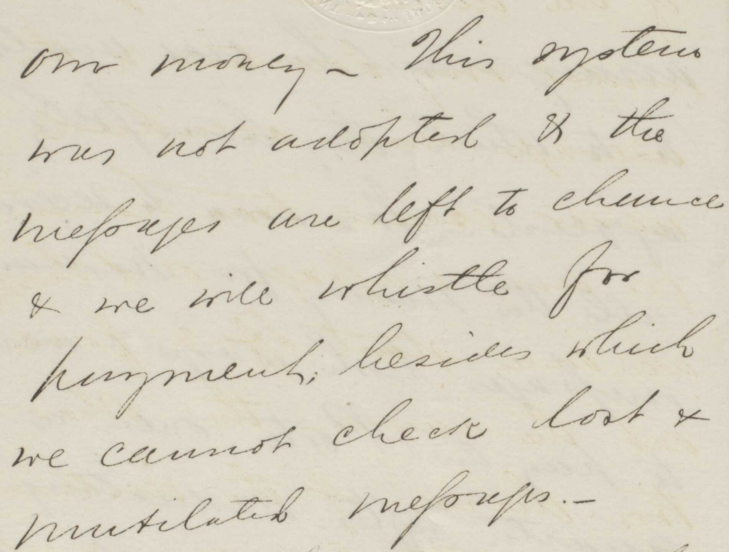 our money – This system
was not adopted & the
messages are left to chance
& we will whistle for
payment; besides which
we cannot check lost &
mutilated messages. –